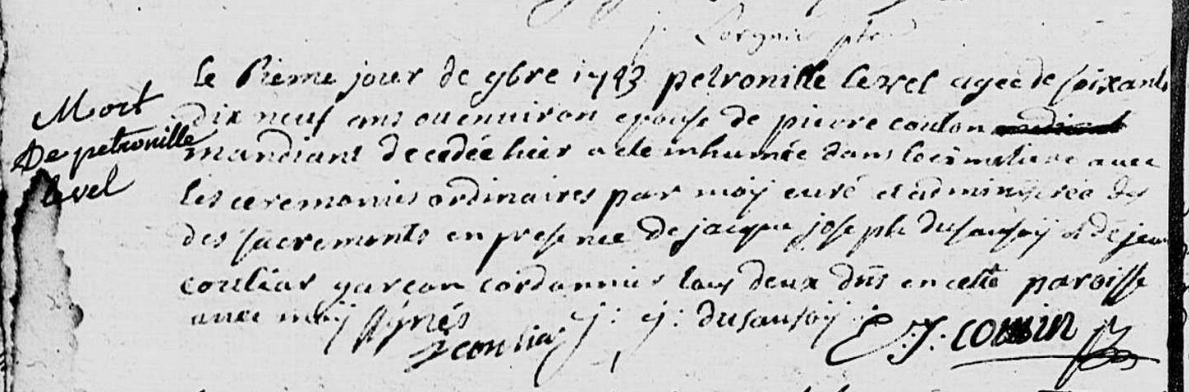 Lorgnie ptre
le 8ieme jour de 9bre 1783 petronille level agee de soixante
Mort
dix neuf ans ou environ epouse de pierre coulon
De petronille
mandiant decedée hier a ete inhumée dans le cimetiere avec
level
les ceremonies ordinaires par moy curé et administrée des
des sacrements en presence de jacque joseph dusausoy et de jean
couliar garcon cordonnier tous deux dns en cette paroisse
avec moy signés
j: j: dusausoy
J: cousin